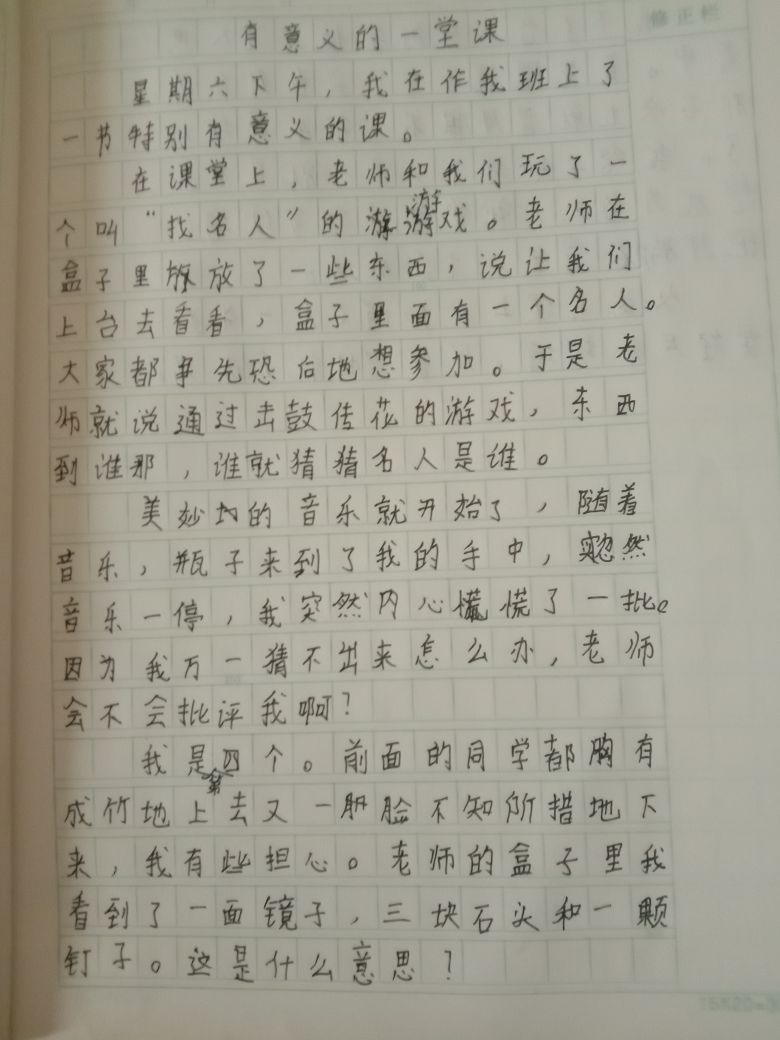 修正栏
有意义的一堂课
星期六下午，我在作我班上了
一节特别有意义的课。
在课堂上，老师和我们玩了一
个叫“找名人”的游戏。老师在
盒子里放了一些东西，说让我们
上台去看看，盒子里面有一个名人。
大家都争先恐后地想参加。于是老
师就说通过击鼓传花的游戏，东西
到谁那，谁就猜猜名人是谁。
美妙的音乐就开始了，随着
音乐，瓶子来到了我的手中，忽然
音乐一停，我突然内心慌了一批。
因为我万一猜不出来怎么办，老师
会不会批评我啊？
我是第四个。前面的同学都胸有
成竹地上去又一脸不知所措地下
来，我有些担心。老师的盒子里我
看到了一面镜子，三块石头和一颗
钉子。这是什么意思？